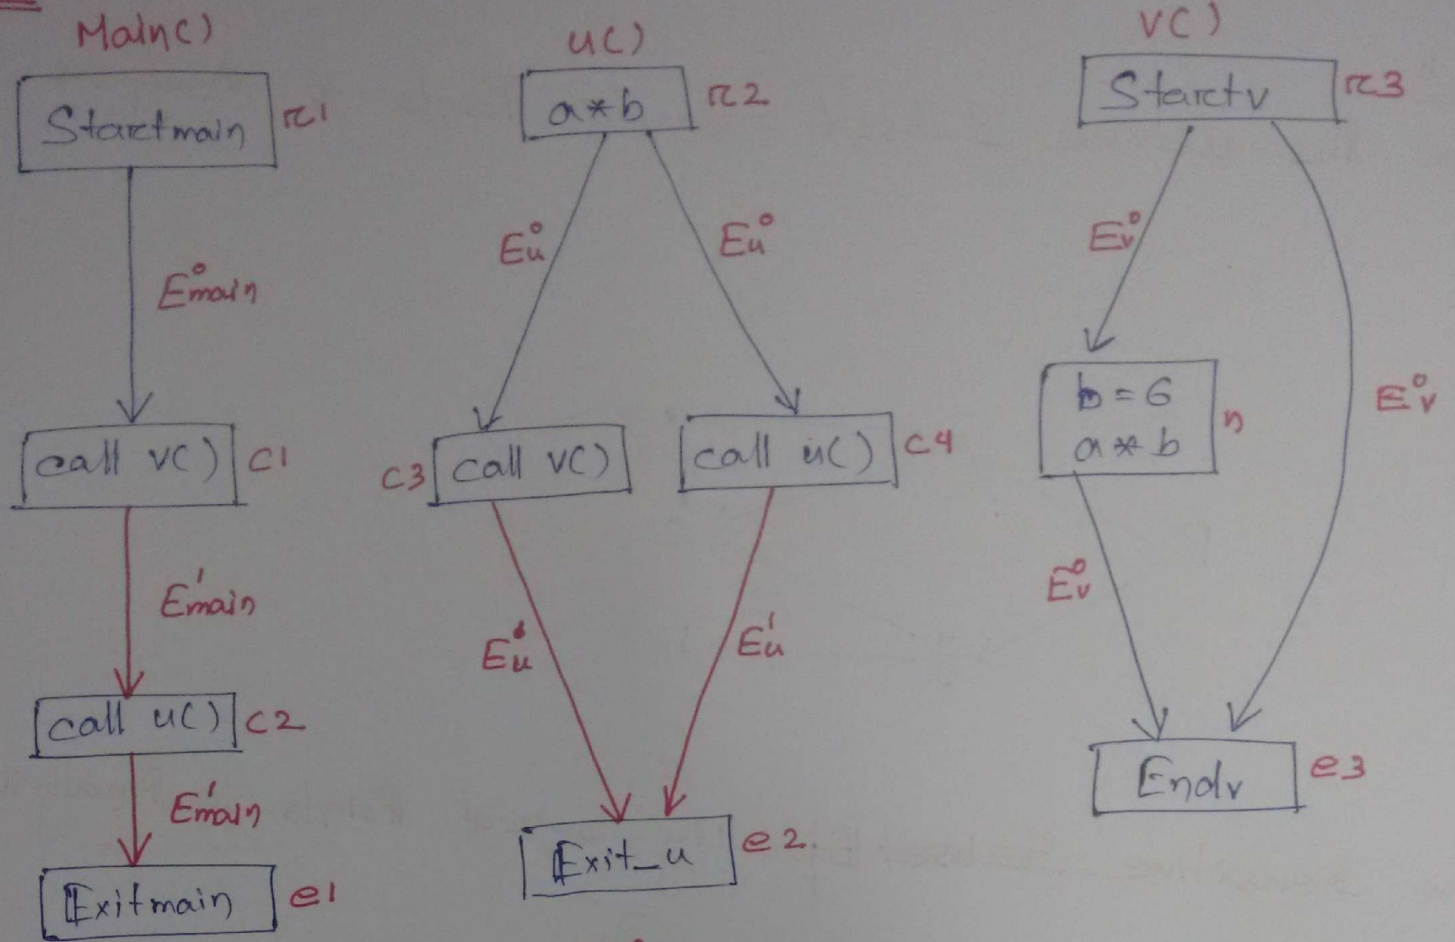 Main()
Startmain
r1
E°main
call v()
c1
E'main
call u()
c2
E'main
Exitmain
e1
u()
a*b
r2
Eu°
Eu°
c3
call v()
call u()
c4
Eu'
Eu'
Exit_u
e2.
v()
Startv
r3
Ev°
Ev°
b = 6
a * b
n
Ev°
Endv
e3